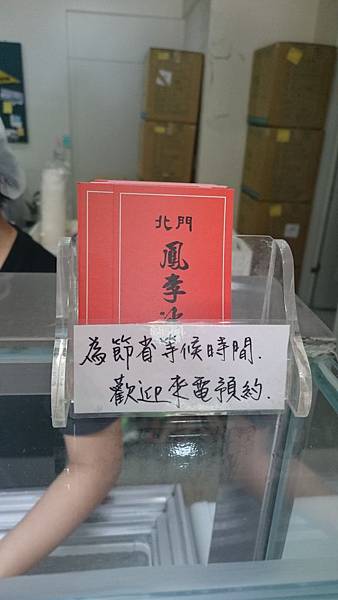 北門
鳳李冰
為節省等候時間.
歡迎來電預約.